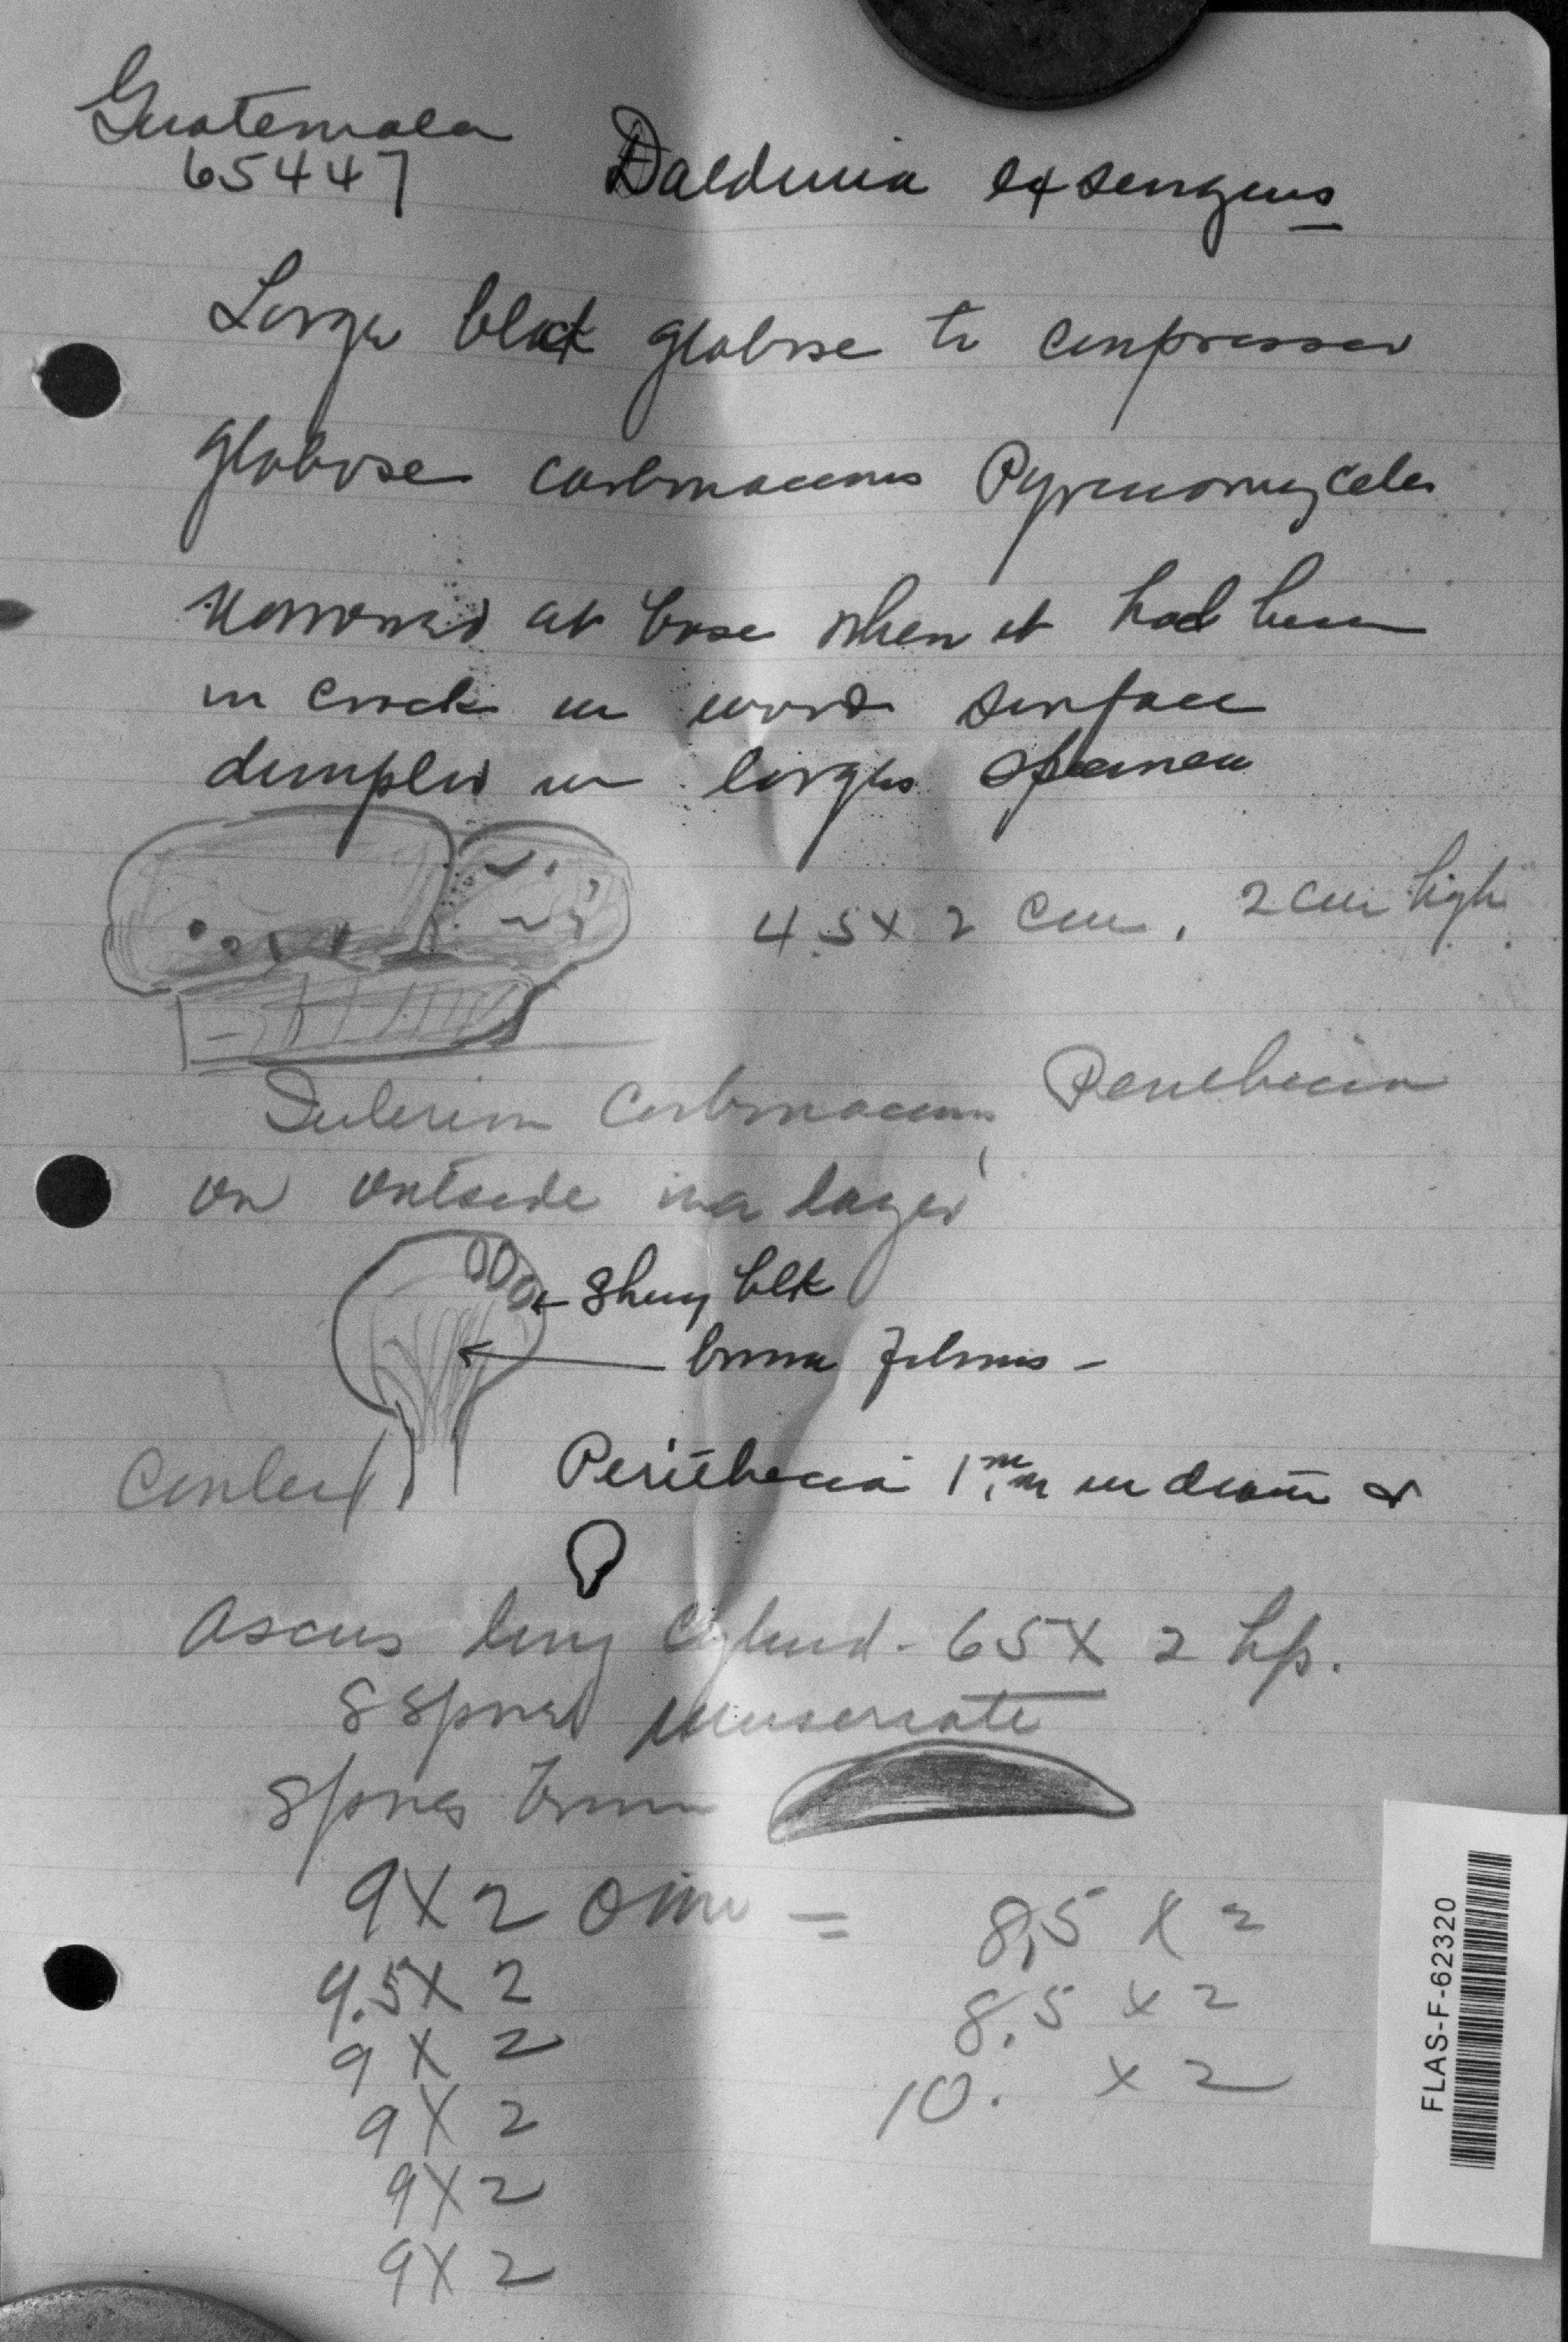 Guatemala
65447 Daldinia
Large black globose to compressed
globose carbonaceous Pyrenomycetes
narrowed at base when it had been
in crack in wood surface
dimpled in larger specimen
4.5 x 2 cm. 2 cm high
Interior carbonaceous, Perithecia
on outside in a layer
← Shiny blk
← brown fibrous -
Center Perithecia 1 mm in diam
Ascus long cylind - 65 X 2 hp.
8 spored uniseriate
Spores brown
9 X 2 = 8.5 X 2
9.5 X 2 8.5 x 2
9 X 2 10. x 2
9 X 2
9 X 2
9 X 2
FLAS-F-62320